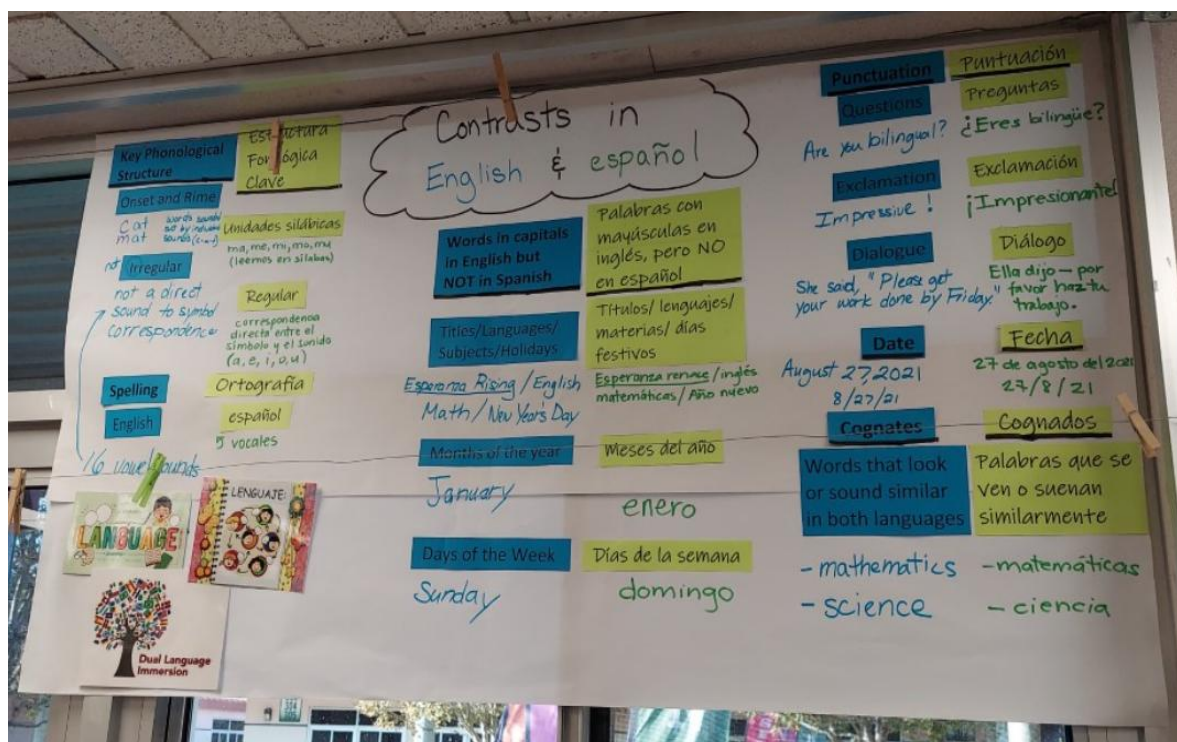 Contrasts in
English & español
Key Phonological
Structure
Estructura
Fonológica
Clave
Onset and Rime
cat
mat
words sound
out by individual
sounds (c-a-t)
Unidades silábicas
ma, me, mi, mo, mu
(leemos en sílabas)
not Irregular
not a direct
sound to symbol
correspondence
Regular
correspondencia
directa entre el
símbolo y el sonido
(a, e, i, o, u)
Spelling
Ortografía
English
español
16 vowel sounds
5 vocales
LANGUAGE
LENGUAJE
Dual Language
Immersion
Words in capitals
in English but
NOT in Spanish
Palabras con
mayúsculas en
inglés, pero NO
en español
Titles/Languages/
Subjects/Holidays
Títulos/ lenguajes/
materias/ días
festivos
Esperanza Rising / English
Math / New Year's Day
Esperanza renace / inglés
matemáticas / Año nuevo
Months of the year
Meses del año
January
enero
Days of the Week
Días de la semana
Sunday
domingo
Punctuation
Puntuación
Questions
Preguntas
Are you bilingual?
¿Eres bilingüe?
Exclamation
Exclamación
Impressive !
¡Impresionante!
Dialogue
Diálogo
She said, "Please get
your work done by Friday."
Ella dijo — por
favor haz tu
trabajo.
Date
Fecha
August 27, 2021
8/27/21
27 de agosto del 2021
27/8/21
Cognates
Cognados
Words that look
or sound similar
in both languages
Palabras que se
ven o suenan
similarmente
- mathematics
- science
- matemáticas
- ciencia